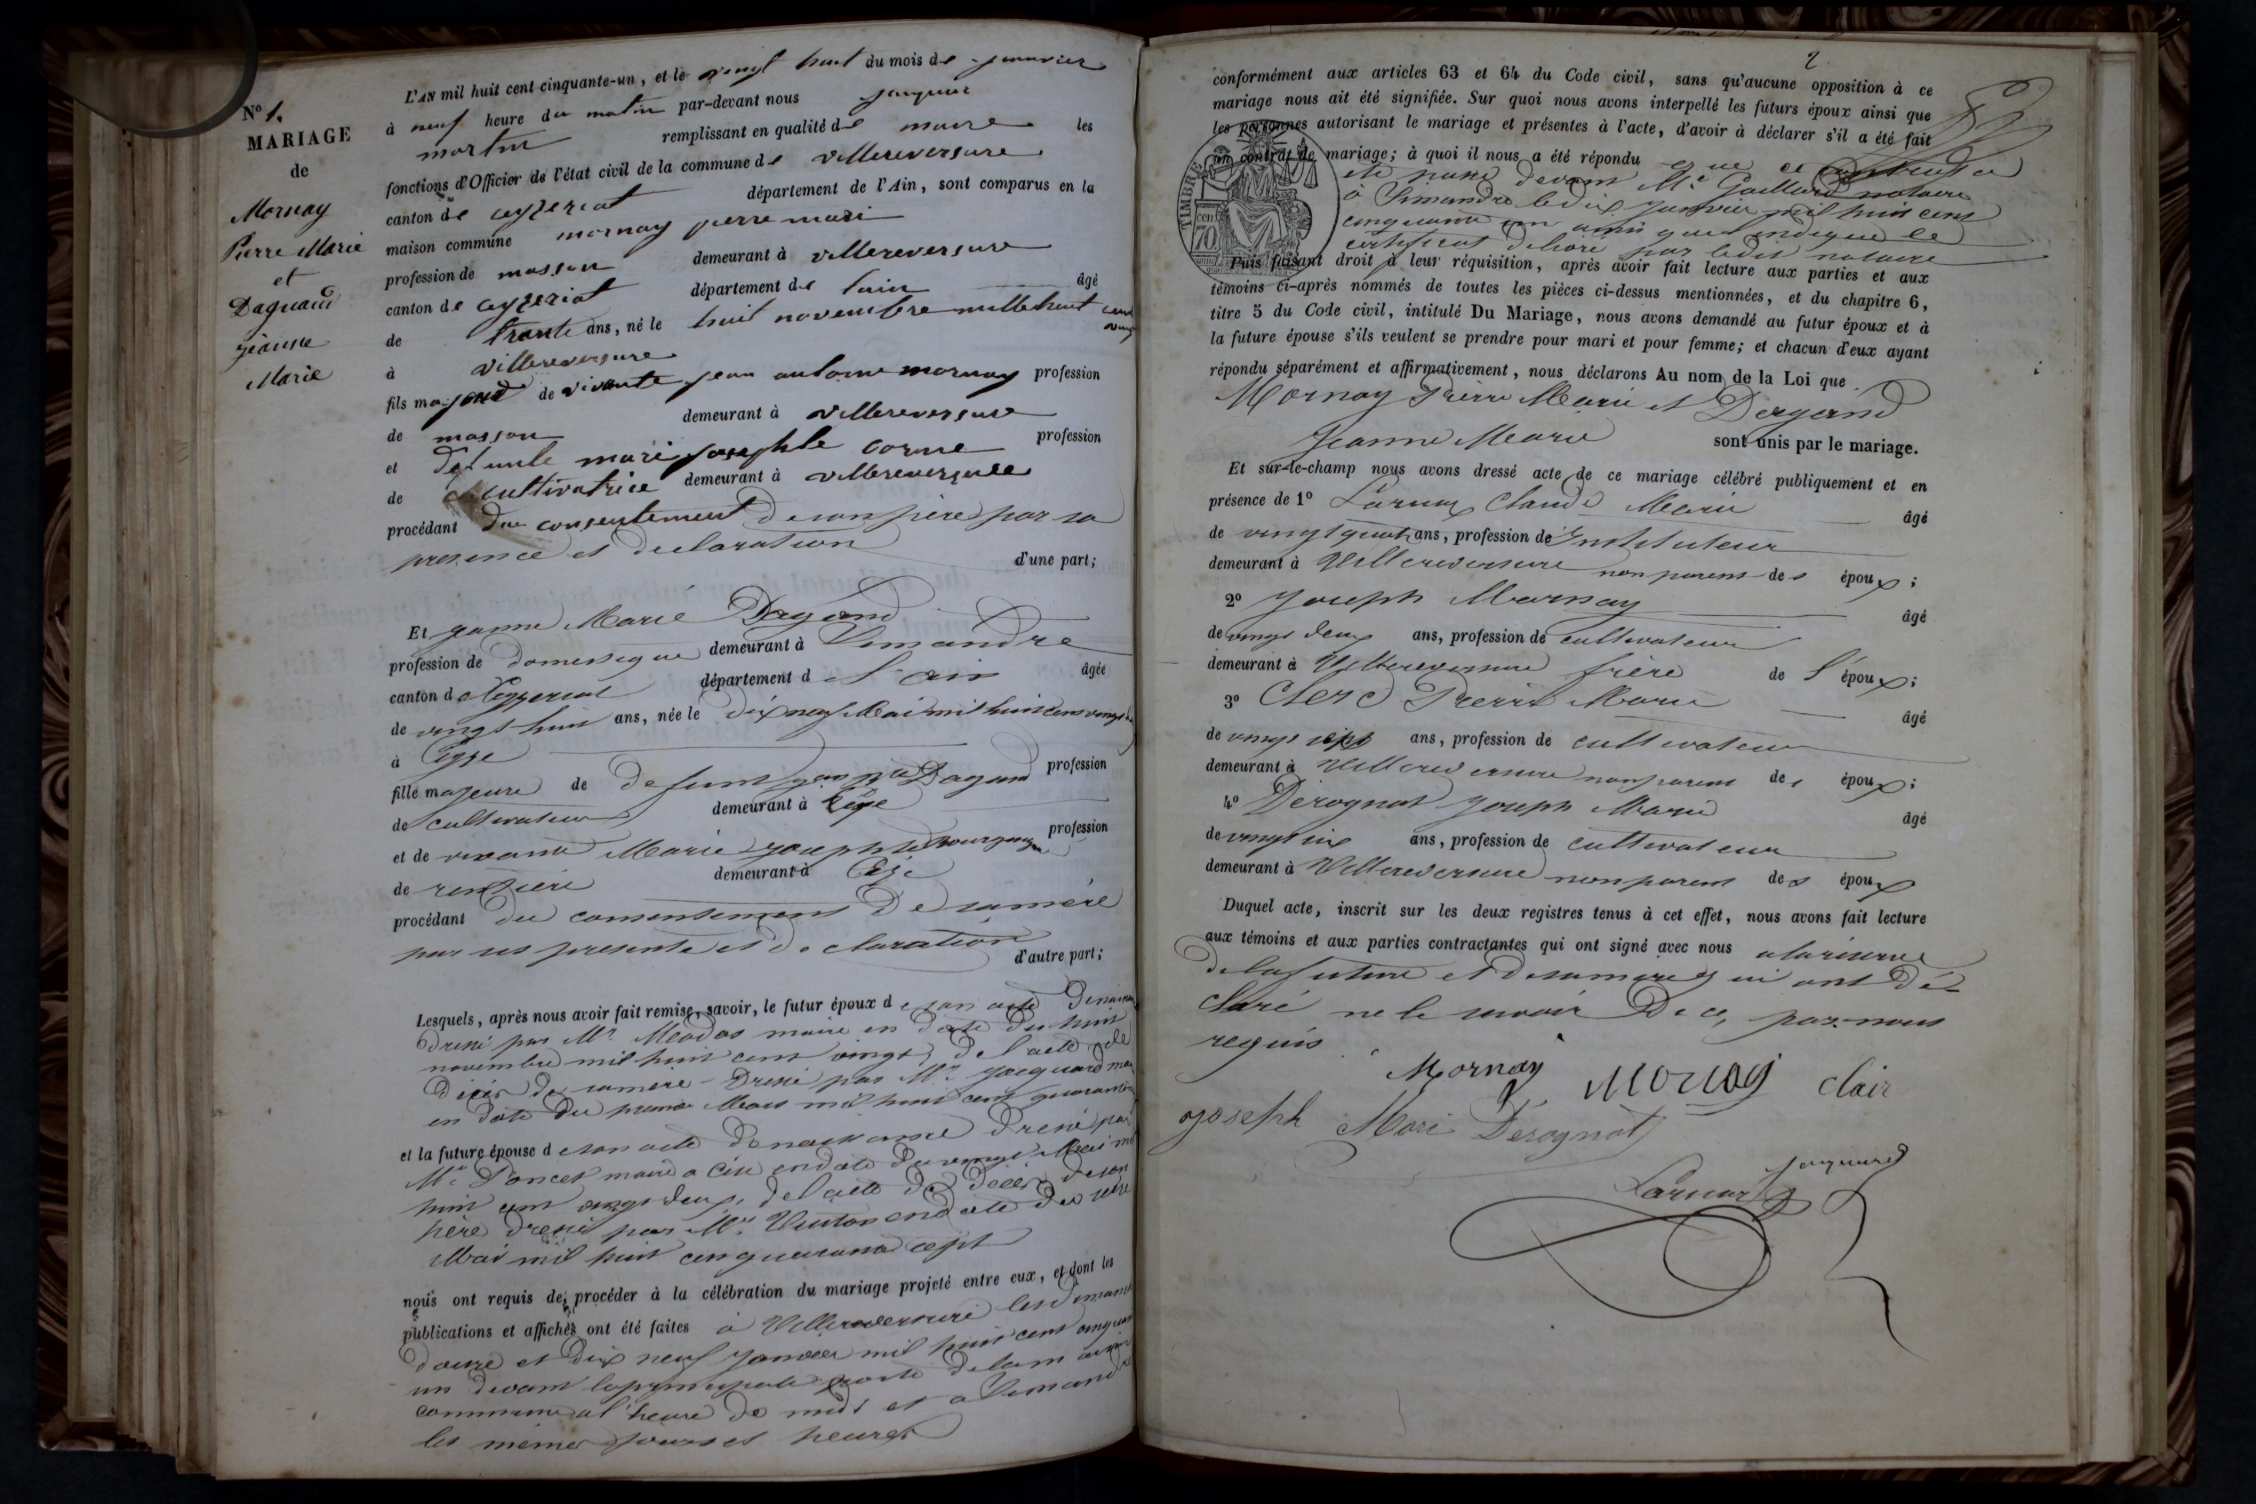 N° 1.
MARIAGE
de
Mornay
Pierre Marie
et
Daguand
jéanne
Marie
L'AN mil huit cent cinquante-un, et le vingt huit du mois de janvier
à neuf heure du matin par-devant nous
martin remplissant en qualité de maire les
fonctions d'Officier de l'état civil de la commune de villereversure
canton de ceyzeriat département de l'Ain, sont comparus en la
maison commune mornay pierre mari
profession de masson demeurant à villereversure
canton de ceyzeriat département de lain âgé
de trante ans, né le huit novembre mille huit cent
à villereversure
fils majeur de vivante jean antoine mornay profession
de masson demeurant à villereversure
et defunte mari josephte corne profession
de cultivatrice demeurant à villereversure
procédant du consentement de son père par sa
presence et declaration d'une part;
Et janne Marie Dagand
profession de domestique demeurant à Simandre
canton d Ceyzeriat département d l'ain âgée
de vingt huit ans, née le dix neuf Mai mil huit cent vingt
à Cize
fille majeure de defunt Dagand profession
de cultivateur demeurant à Cize
et de vivante Marie josephte profession
de rentière demeurant à Cize
procédant du consentement de sa mère
par ses presente et declaration d'autre part;
Lesquels, après nous avoir fait remise, savoir, le futur époux d e son acte
dressé par Mr maire en date du huit
novembre mil huit cent vingt, de l'acte de
décès de sa mère dressé par Mr jacquand
en date du premier Mars mil huit cent
et la future épouse d e son acte de naissance dressé par
Mr Poncet maire a Cize en date du vingt Mai mil
huit cent vingt deux, de l'acte de décès de son
père dressé par Mr en date du
Mai mil huit cent quarante sept
nous ont requis de procéder à la célébration du mariage projeté entre eux, et dont les
publications et affiches ont été faites à Villereversure les dimanches
douze et dix neuf janvier mil huit cent cinquante
un devant la principale porte de la maison
commune a l'heure de midi et a Simandre
les mêmes jours et heures
2
conformément aux articles 63 et 64 du Code civil, sans qu'aucune opposition à ce
mariage nous ait été signifiée. Sur quoi nous avons interpellé les futurs époux ainsi que
les personnes autorisant le mariage et présentes à l'acte, d'avoir à déclarer s'il a été fait
un contrat de mariage; à quoi il nous a été répondu que ce contrat a
été passé devant Me Gaillard notaire
à Simandre le dix janvier mil huit cent
cinquante un ainsi que l'indique le
certificat délivré par ledit notaire
TIMBRE
70
Puis faisant droit à leur réquisition, après avoir fait lecture aux parties et aux
témoins ci-après nommés de toutes les pièces ci-dessus mentionnées, et du chapitre 6,
titre 5 du Code civil, intitulé Du Mariage, nous avons demandé au futur époux et à
la future épouse s'ils veulent se prendre pour mari et pour femme; et chacun d'eux ayant
répondu séparément et affirmativement, nous déclarons Au nom de la Loi que
Mornay Pierre Marie et Dagand
Jeanne Marie sont unis par le mariage.
Et sur-le-champ nous avons dressé acte de ce mariage célébré publiquement et en
présence de 1° Claude Marie âgé
de vingt quatre ans, profession de Instituteur
demeurant à Villereversure non parent de s époux;
2° Joseph Mornay âgé
de vingt deux ans, profession de cultivateur
demeurant à Villereversure frère de l' époux;
3° Clerc Pierre Marie âgé
de vingt sept ans, profession de cultivateur
demeurant à Villereversure non parent de s époux;
4° Derognat Joseph Marie âgé
de vingt six ans, profession de cultivateur
demeurant à Villereversure non parent de s époux
Duquel acte, inscrit sur les deux registres tenus à cet effet, nous avons fait lecture
aux témoins et aux parties contractantes qui ont signé avec nous a la réserve
de la future et de sa mère qui ont dé-
claré ne le savoir de ce, par nous
requis
Mornay Mornay Clair
joseph Mari Derognat